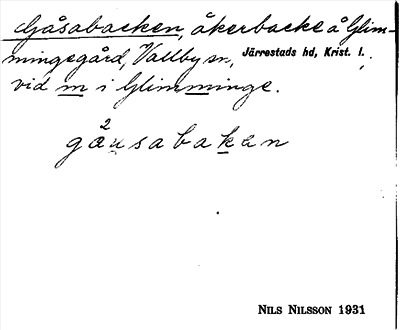 Gåsabacken, åkerbacke å Glim-
mingegård, Vallby sn, Järrestads hd, Krist. l.,
vid m i Glimminge.
ga²usabaken
NILS NILSSON 1931